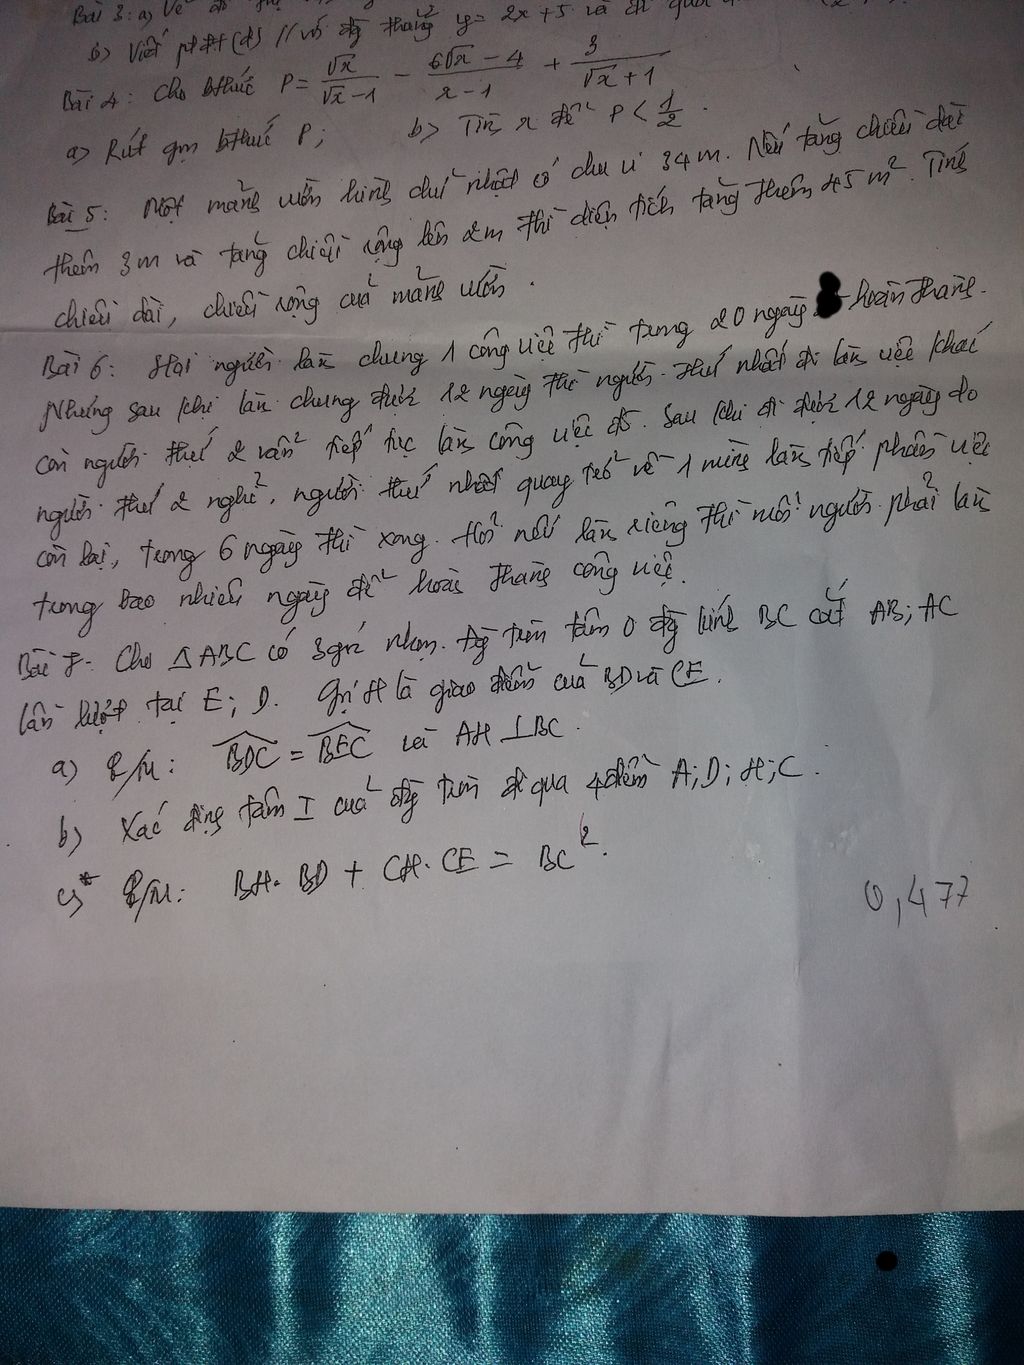 Bài 3: a) Vẽ đồ
b) Viết ptđt (d) // với đg thẳng y = 2x + 5 và đi qua
Bài 4: Cho bthức P = √x/(√x - 1) - (6√x - 4)/(x - 1) + 3/(√x + 1)
a) Rút gọn bthức P; b) Tìm x để P < 1/2.
Bài 5: Một mảng vườn hình chữ nhật có chu vi 34m. Nếu tăng chiều dài
thêm 3m và tăng chiều rộng lên 2m thì diện tích tăng thêm 45m². Tính
chiều dài, chiều rộng của mảng vườn.
Bài 6: Hai người làm chung 1 công việc thì trong 20 ngày hoàn thành.
Nhưng sau khi làm chung được 12 ngày thì người thứ nhất đi làm việc khác
còn người thứ 2 vẫn tiếp tục làm công việc đó. Sau khi đi được 12 ngày do
người thứ 2 nghỉ, người thứ nhất quay trở về 1 mình làm tiếp phần việc
còn lại, trong 6 ngày thì xong. Hỏi nếu làm riêng thì mỗi người phải làm
trong bao nhiêu ngày để hoàn thành công việc.
Bài 7. Cho △ABC có 3 góc nhọn. Đg tròn tâm O đg kính BC cắt AB; AC
lần lượt tại E; D. Gọi H là giao điểm của BD và CE.
a) C/M: BDC = BEC và AH ⊥ BC.
b) Xác định tâm I của đg tròn đi qua 4 điểm A; D; H; C.
c)* C/M: BH. BD + CH. CE = BC².
0,477